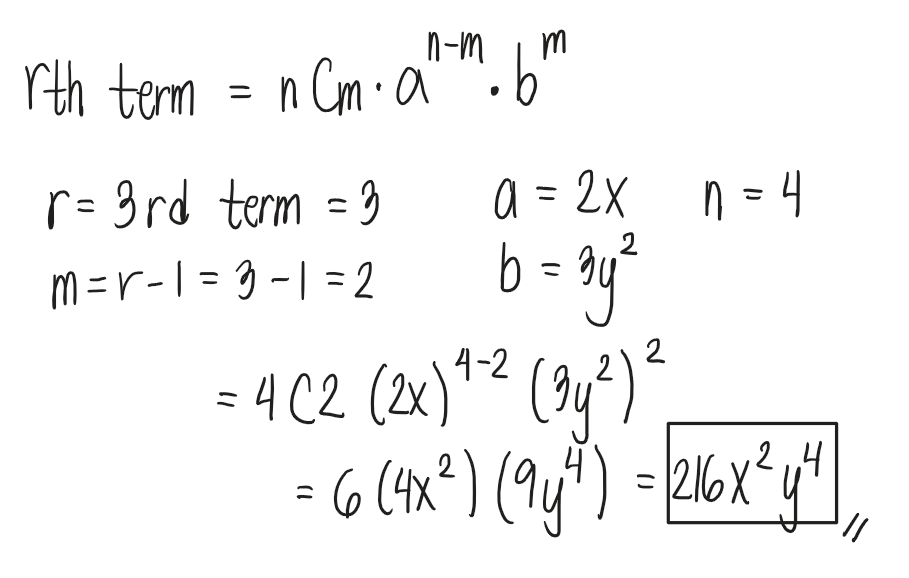 rth term = nCm · a^(n-m) · b^m
r = 3rd term = 3 a = 2x n = 4
m = r - 1 = 3 - 1 = 2 b = 3y²
= 4C2 (2x)^(4-2) (3y²)²
= 6 (4x²) (9y⁴) = 216x²y⁴ //